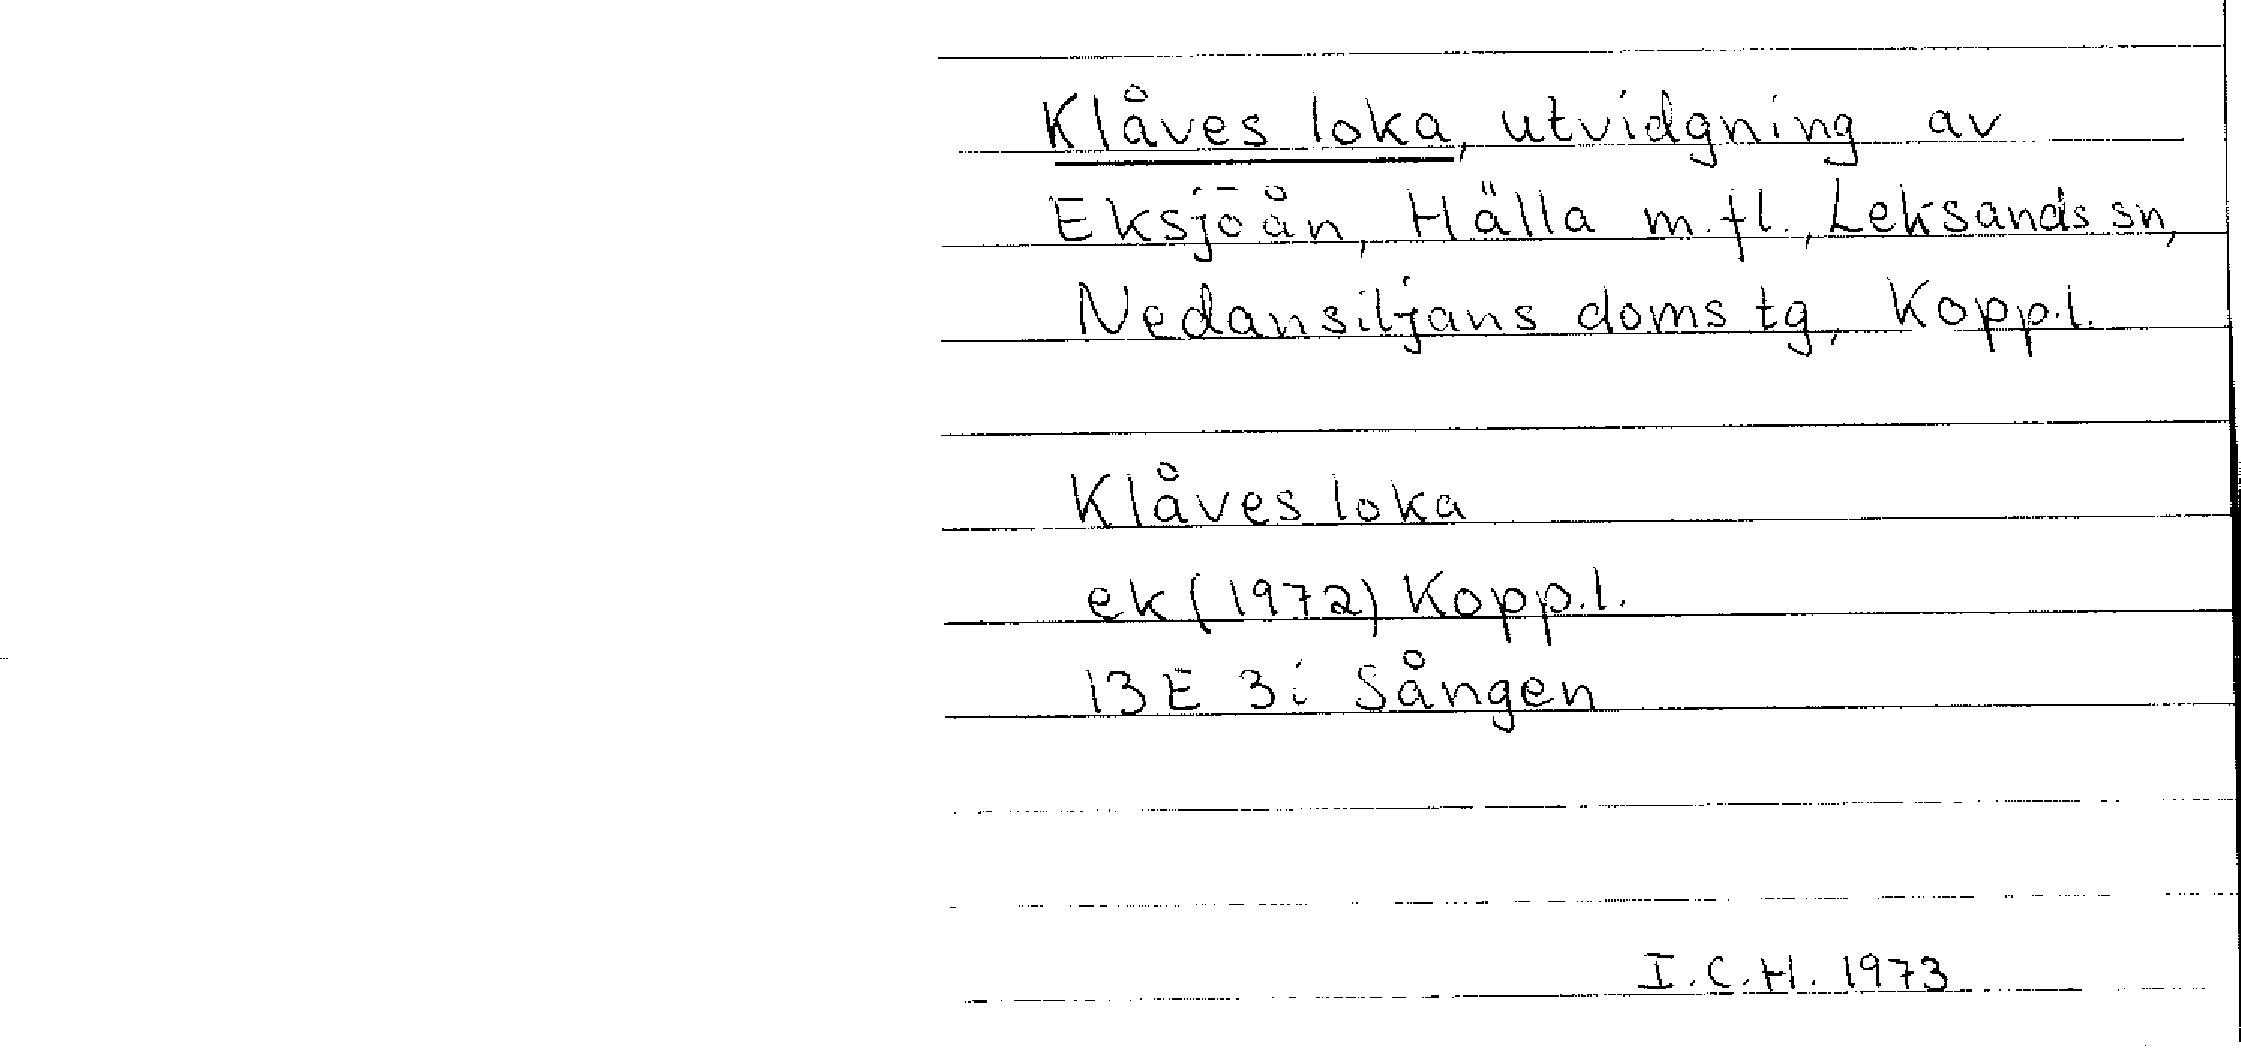 Klåves loka, utvidgning av
Eksjöån, Hälla m.fl., Leksands sn,
Nedansiljans doms tg, Kopp.l.
Klåves loka
ek (1972) Kopp.l.
13E 3i Sången
I.C.H. 1973